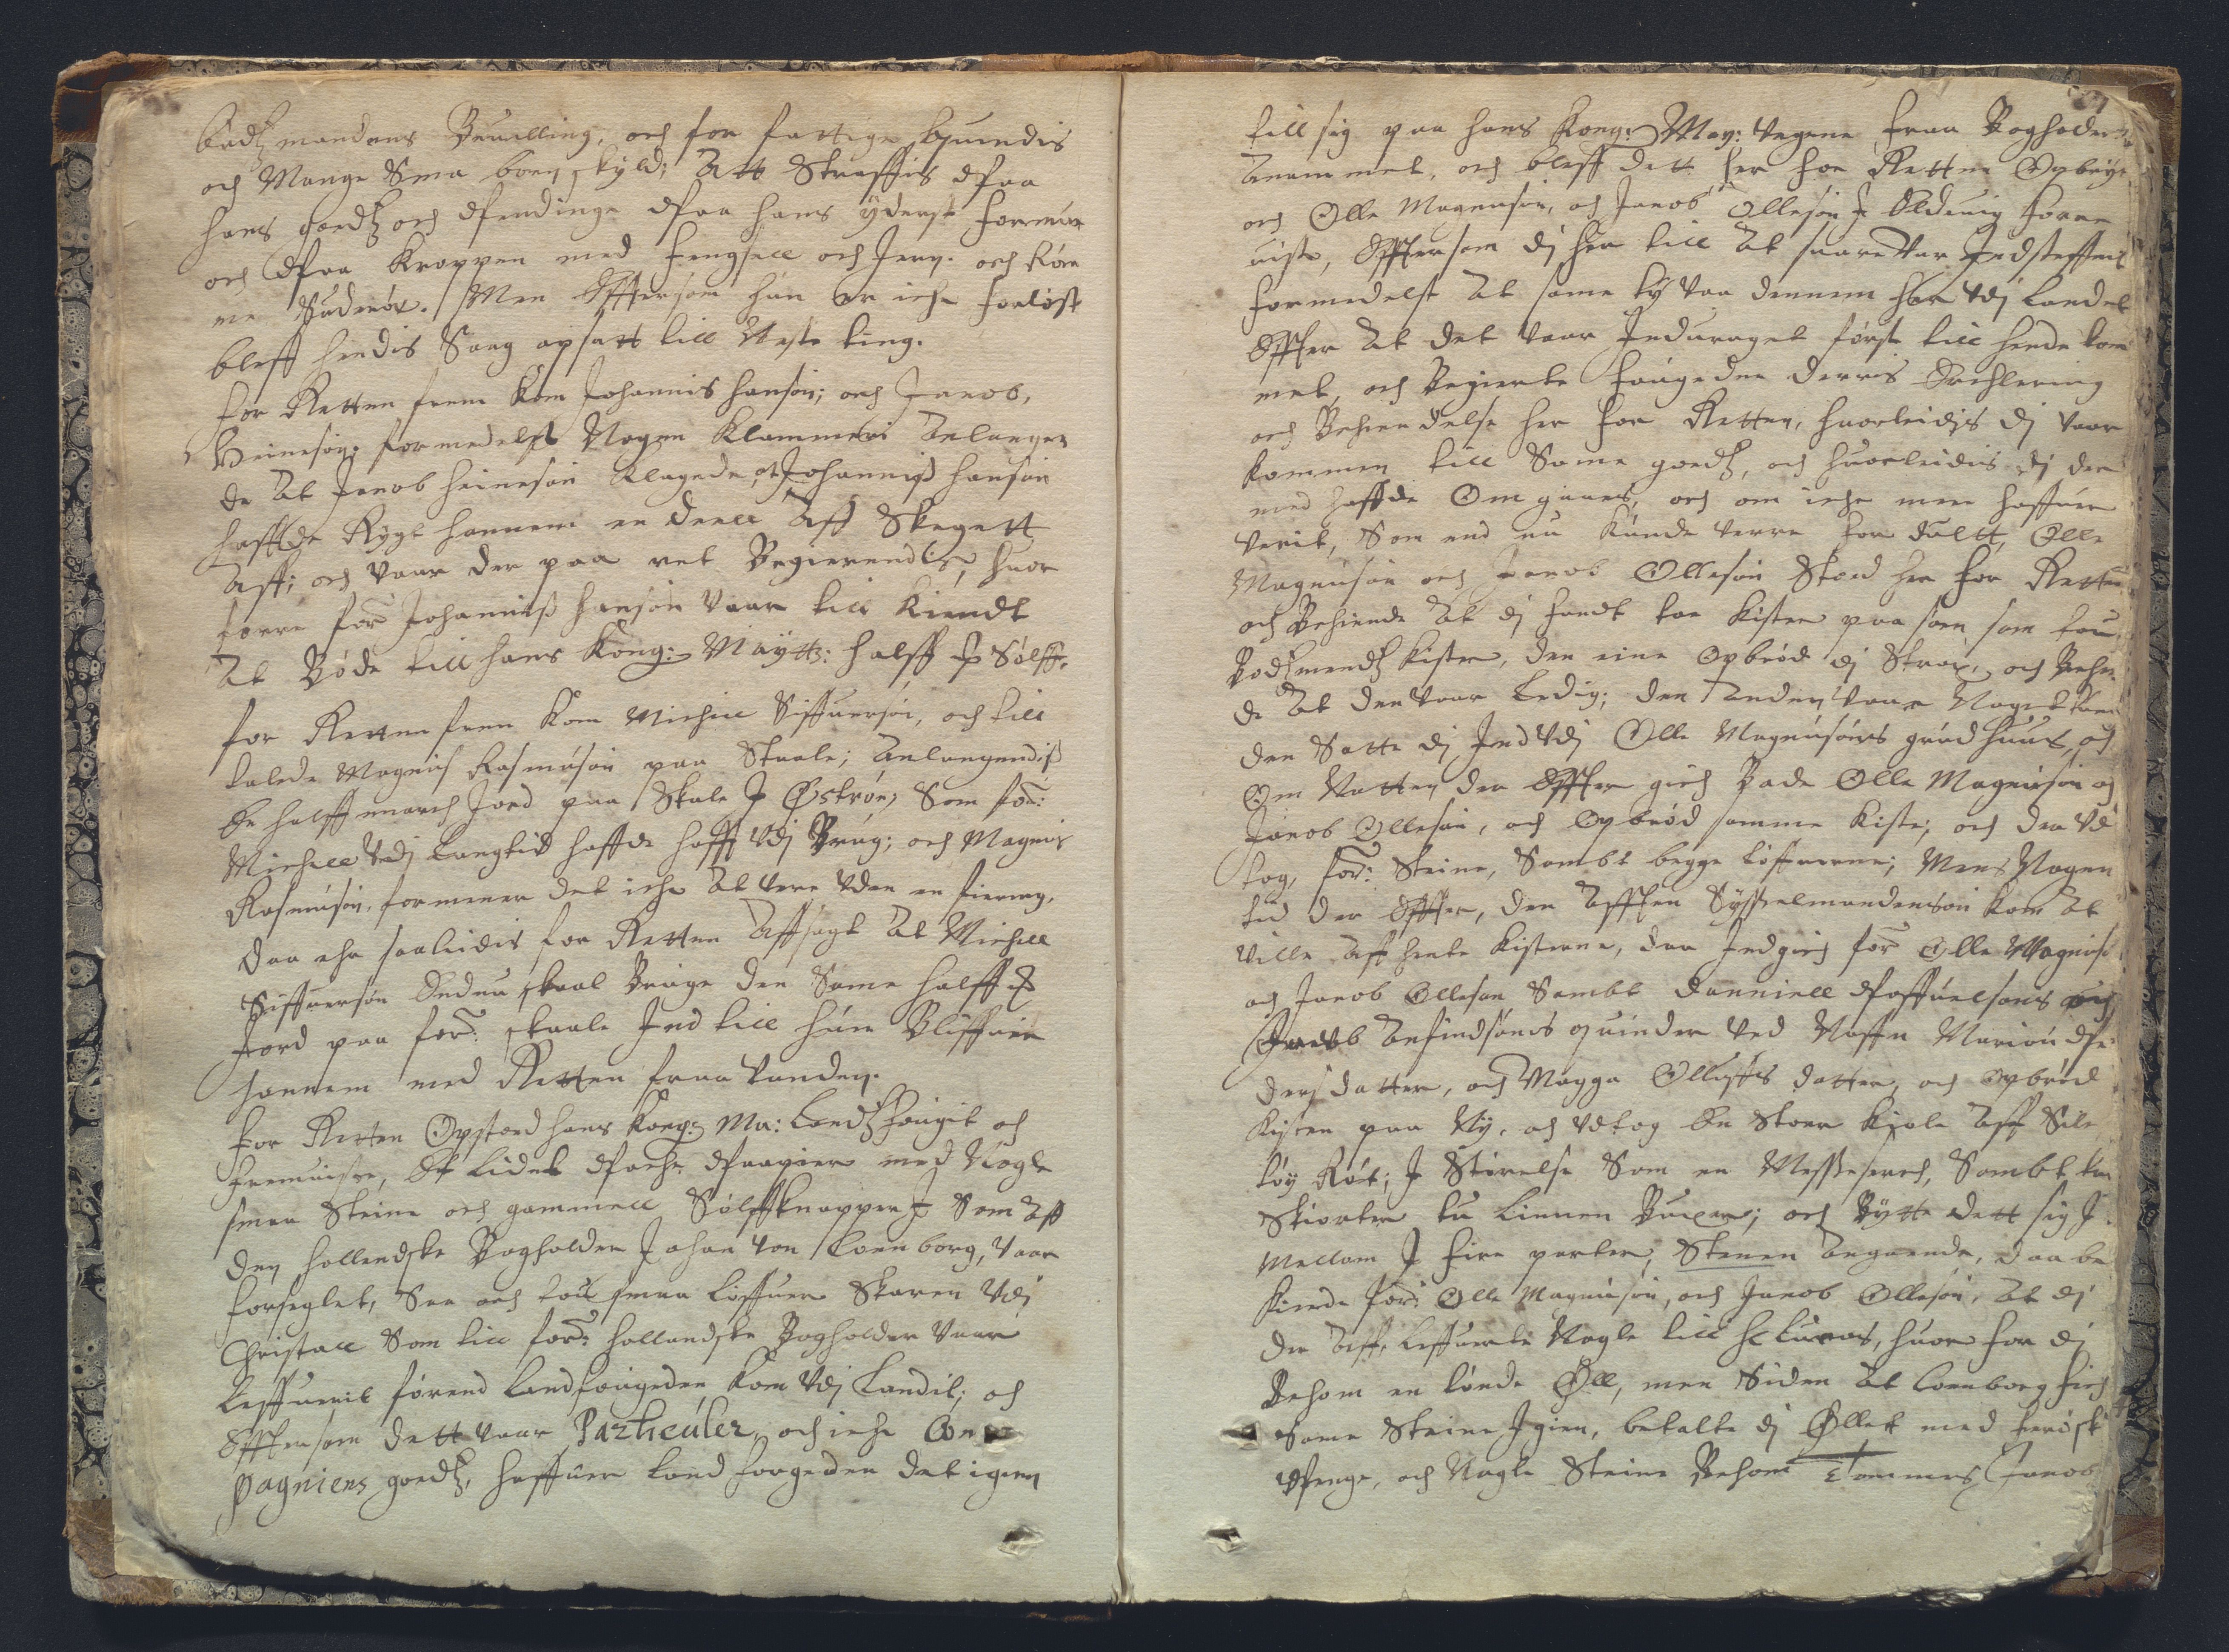 Bodtzmandens Beuilling, och for fattige Quindis
och Mange Smaa børns skyld; Att Straffis Paa
hans goedtz och Pendinge Paa hans yderst formue
och Paa Kroppen med Fengsell och Jern. och Røm
me Suderøe. Men Effttersom hun er iche forløst
bleff hendis Saag opsatt till Neste ting.
For Retten frem Kom Johannis Hansøn; och Jacob,
Heinesøn. formedelst Nogen Klammeri Anlangen
de At Jacob Heinesøn Klagede, at Johanniss Hansøn
haffde Rygt hannem en deell Aff Skegett
Aff; och Vaar der paa ret Begierendis, huor
forre for: Johanniss Hansøn Vaar till Kiendt
At Bøde till hans Kong: Maytt: halff ℔ Sølff.
for Retten frem Kom Michill Siffuersøn, och till
talede Magnus Rasmusøn paa Skaale; Anlangendis
En halff march Jord paa Skale J Østrøe, Som for:
Michell Vdj Langtid haffde hafft Vdj Brug; och Magnus
Rasmusøn, formener det iche At Vere Vden en fiering,
Daa ehr saaleidis for Retten Affsagt At Michill
Siffuersøn Endnu skaal Bruge den Same halff ℔
Jord paa for: skaale Ind till hun Bliffuer
hannem med Retten fraa Vunden.
For Retten Opstoed hans Kong: Ma: Landtzfougit och
Fremuiste, Et lidet Pache Papier med Nogle
smaa Steine och gammell Sølffknapper J Som Aff
den hollendske Bogholder Johan Von Loenborg, Vaar
forseglet, Saa och tou smaa Løffuer Skaren Vdj
Christall Som till for: hollandske Bogholder Vaar
Leffuerit førend Landfougeden Kom Vdj Landit; och
Effttersom dett Vaar Particuler, och iche Com
pagniens goedtz, haffuer Landfogeden det igien
till sig paa hans Kong: May: Vegene fraa Bogholderen
Anammet, och bleff dett her for Retten Opbrÿt
och Olle Magnusøn, och Jacob Ollesøn J Oldeuig forre
uist, Effttersom dj her till At suare Var Indsteffnt
formedelst At same tÿ Vaa dennem her Vdj landet
Effter At det Vaar Indraget først till hende kom
met, och Begierte Fougeden derris Erchlering
och Bekiendelse her for Retten, huorleidis dj Vaar
kommen till Same goedtz, och huorleidis dj der
med haffde Omgaaes, och om iche mere haffuer
Verit, Som end nu kunde Verre for dultt, Olle
Magnusøn och Jacob Ollesøn Stod her for Retten
och Bekiende At dj fandt toe kister paa søen som tou
Bodtzmendtz kister, den eine Opbrød dj Strax, och Bekien
de At den Vaar Ledig; den Anden Vaar Noget
den Satte dj Ind Vdj Olle Magnusøns grudhuus, och
Om Natten der Effter gich Bade Olle Magnusøn och
Jacob Ollesøn, och Opbrød samme Kiste; och der Vd
tog, for: Steine, Sambt begge Løffuerne; Mens Nogen
tid der Effter, den Afften Sysselmandensøn kom At
Ville Aff hente Kisterne, daa Indgich for: Olle Magnusøn
och Jacob Ollesøn Sambt Danniell Poffuelsøns och
Jacob Anfindsøns quinder Ved Naffn Mariøn Pe
dersdatter, och Magga Olluffs datter, och opbrød
Kisten paa Nÿ, och Vdtog En Stoer Kiole Aff Silk
tøy Røt; J Størelse Som en Messeserch, Sambt
Skiorter tu Linnen Buxer; och Bÿtte dett sig J
Mellom J fire parter, Steenen Angaaende, daa be
kiende for: Olle Magnusøn, och Jacob Ollesøn, At dj
der Aff, Leffuerte Nogle till Hr Lucas, huor for dj
Bekom en tønde Øll, men Siden At Loenborg fich
Same Steine Igien, betalte dj Øllet med ferøsk
Penge, och Nogle Steine Bekom Tommes Jacob